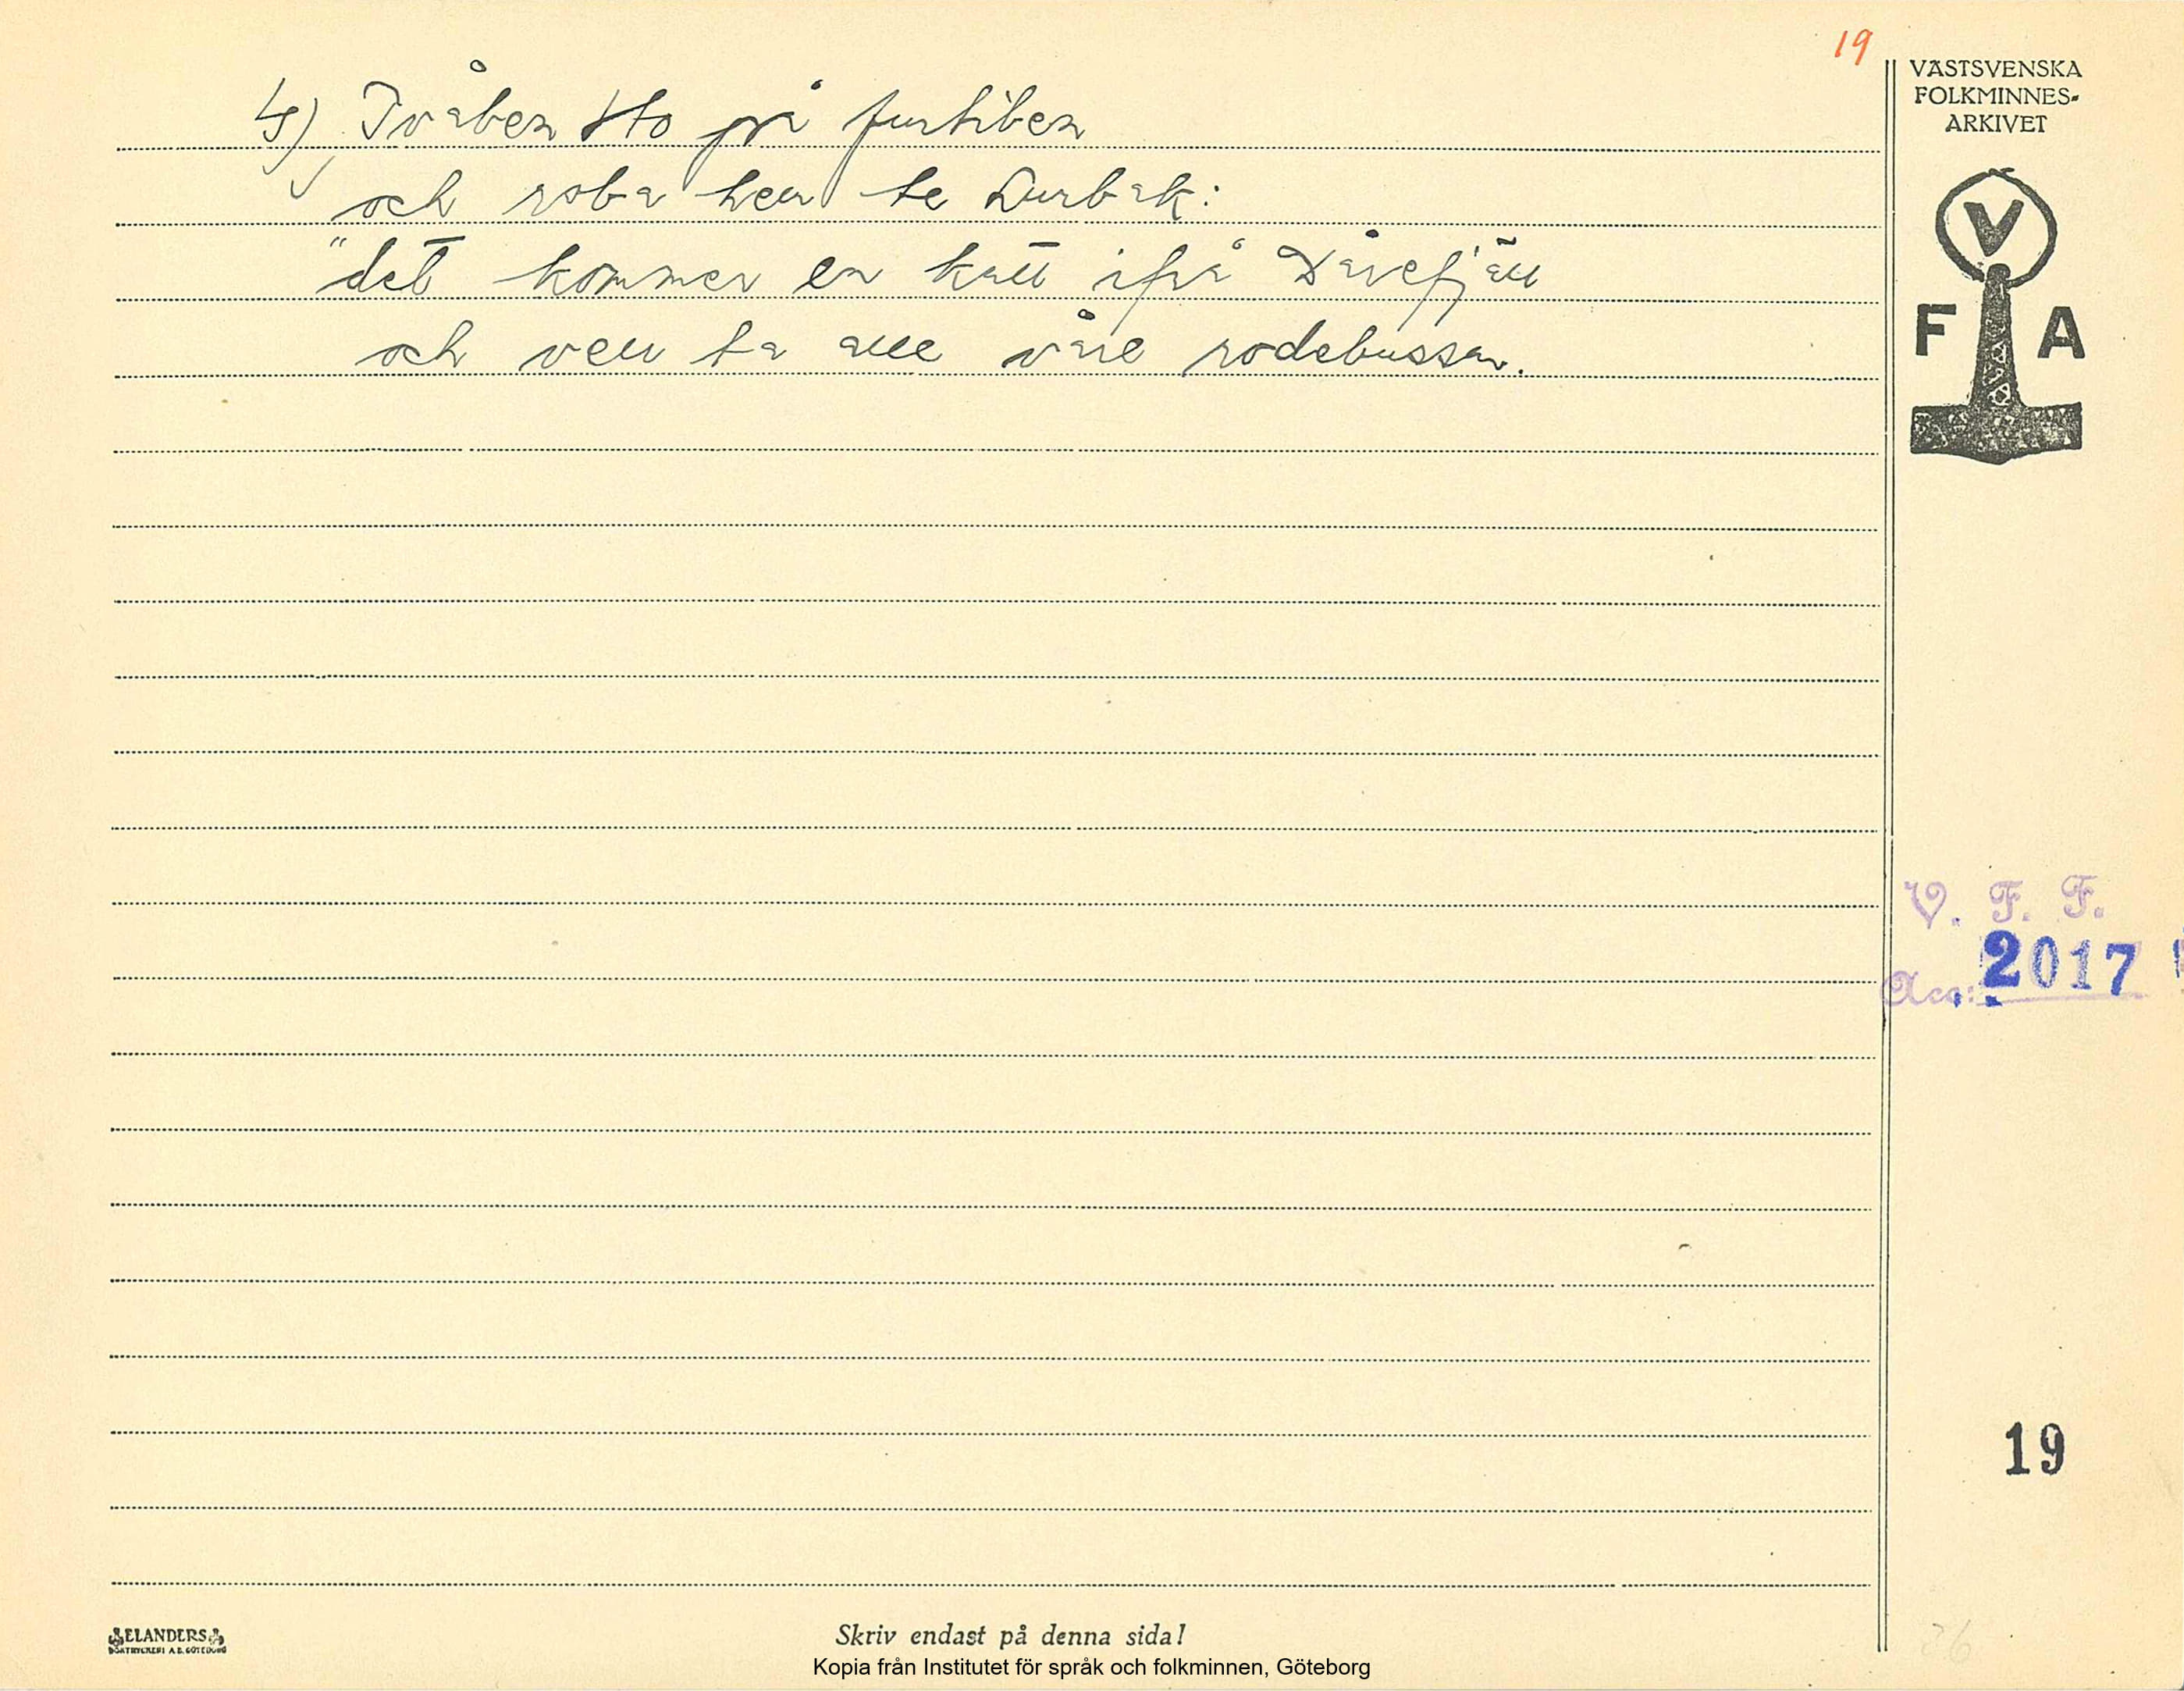 19
VÄSTSVENSKA
FOLKMINNES-
ARKIVET
4) Tvåben sto på furtiben
och roba hen te Durbak:
"det kommer en katt ifrå Dårefjäll
och vell ta alle våre rodebussar.
V
F A
V. F. F.
Acc: 2017
19
ELANDERS
BOKTRYCKERI A.B. GÖTEBORG
Skriv endast på denna sida!
Kopia från Institutet för språk och folkminnen, Göteborg